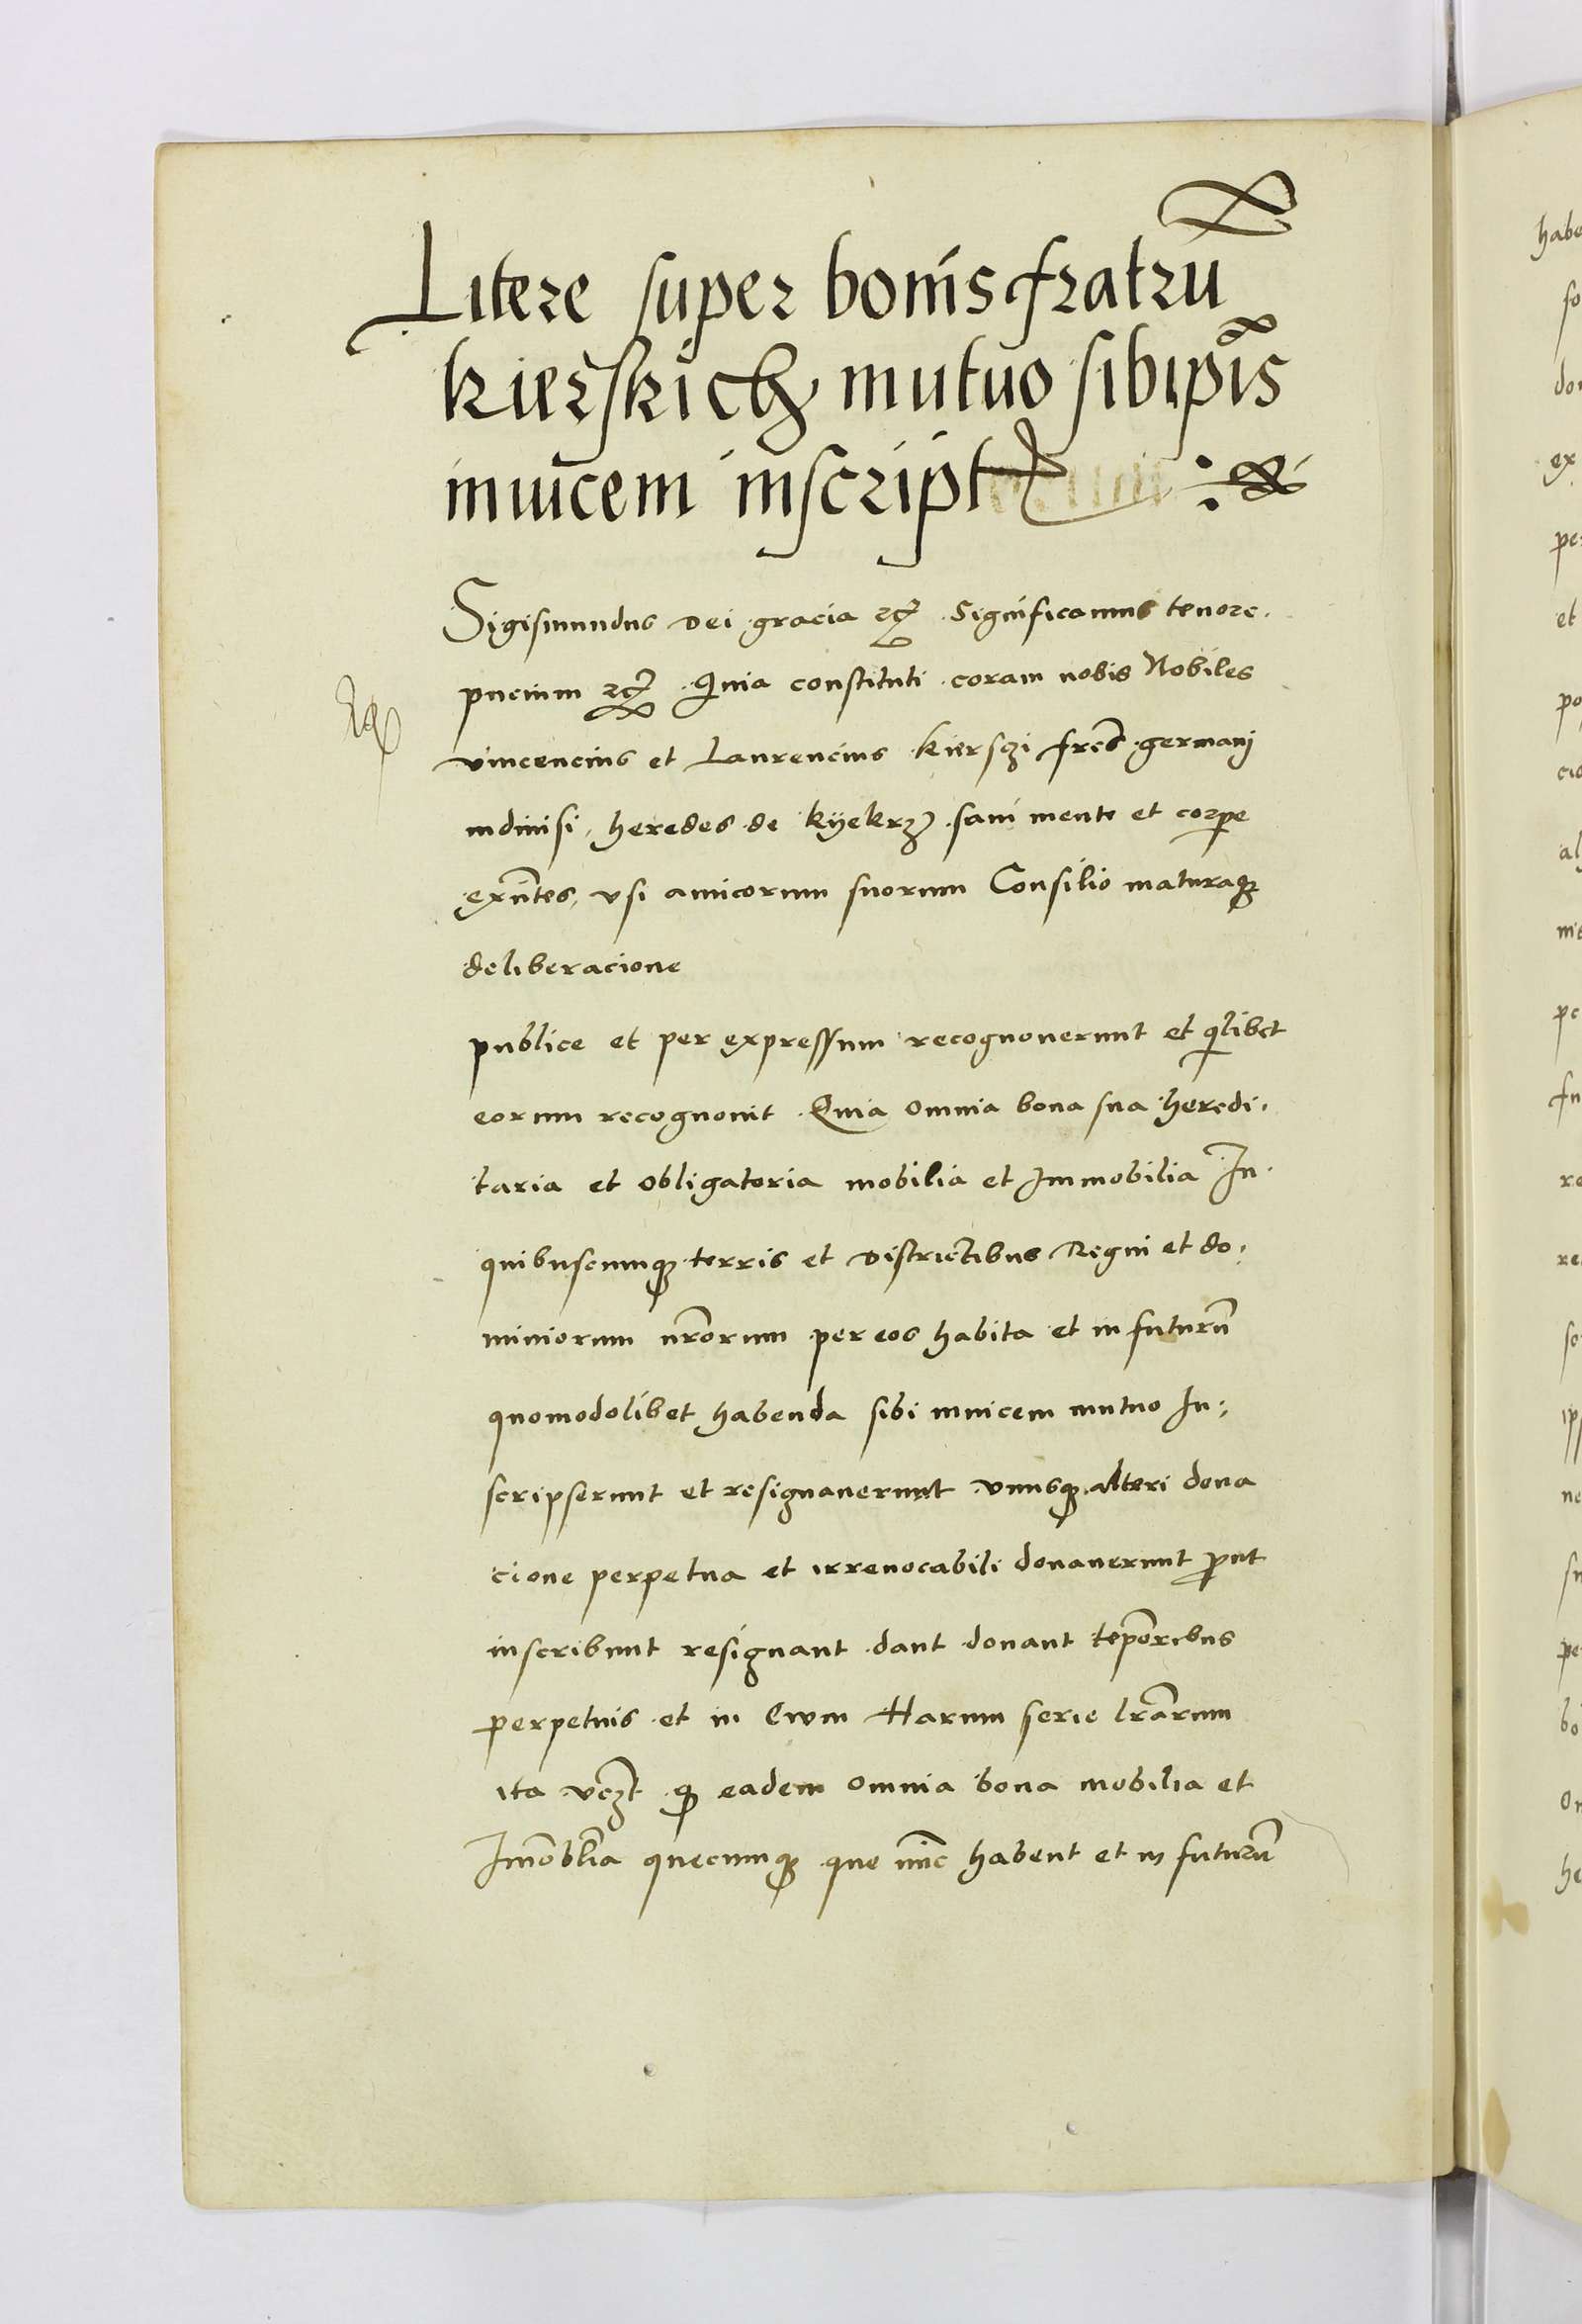 Litere super bonis fratrū
kierskich mutuo sibip̄is
inuicem inscript
Sigismundus Dei gracia ꝛcꝫ Significamus tenore.
pncium ꝛcꝫ Quia constituti coram nobis Nobiles
vincencius et Laurencius kiersczi fres̄ germanj
indiuisi, heredes de kyekrz sani mente et corpe
exn̄tes, vsi amicorum suorum Consilio maturaqꝫ
deliberacione
publice et per expressum recognouerunt et qlibet
eorum recognouit. Quia omnia bona sua heredi,
taria et obligatoria mobilia et Immobilia In
quibuscumqꝫ terris et Districtibus Regni et do,
miniorum nr̄orum per eos habita et in futurū
quomodolibet habenda sibi inuicem mutuo In,
scripserunt et resignauerunt vnusqꝫ alteri dona
cione perpetua et irreuocabili donauerunt ꝓut
inscribunt resignant dant donant tepōribus
perpetuis et in Ewm Harum serie lr̄arum
ita vczt qꝫ eadem omnia bona mobilia et
Imōblia quecumqꝫ que nūc habent et in futurū